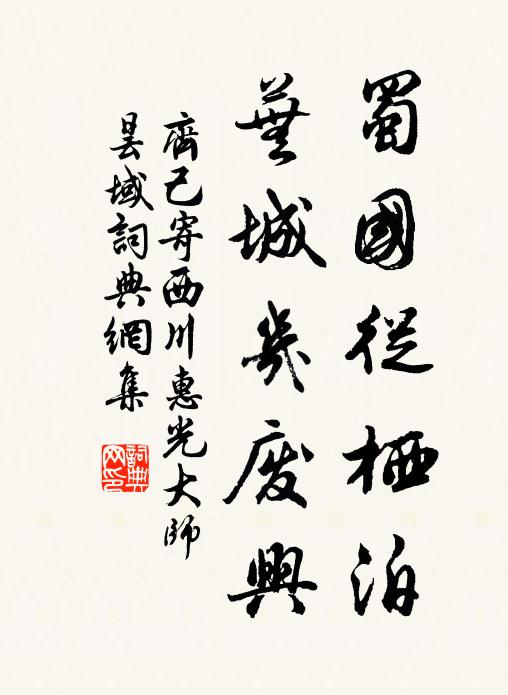 蜀國從栖泊
蕪城幾廢興
齊己寄西川惠光大師
曇域詞典網集
詞典网印